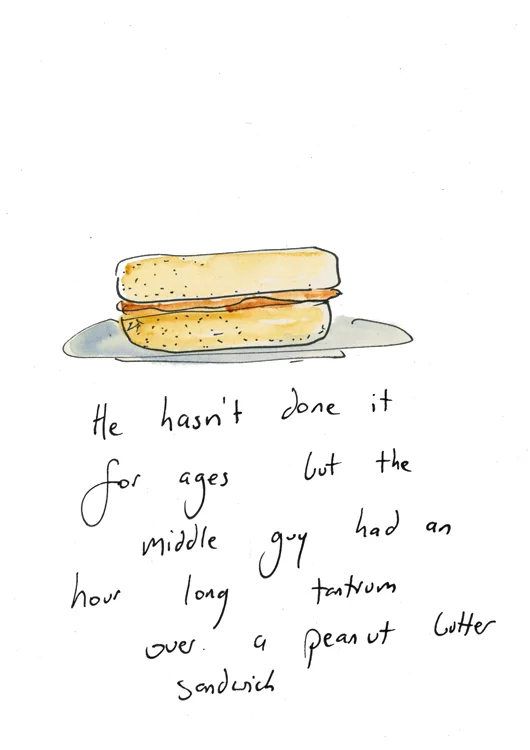 He hasn't done it
for ages but the
middle guy had an
hour long tantrum
over a peanut butter
sandwich